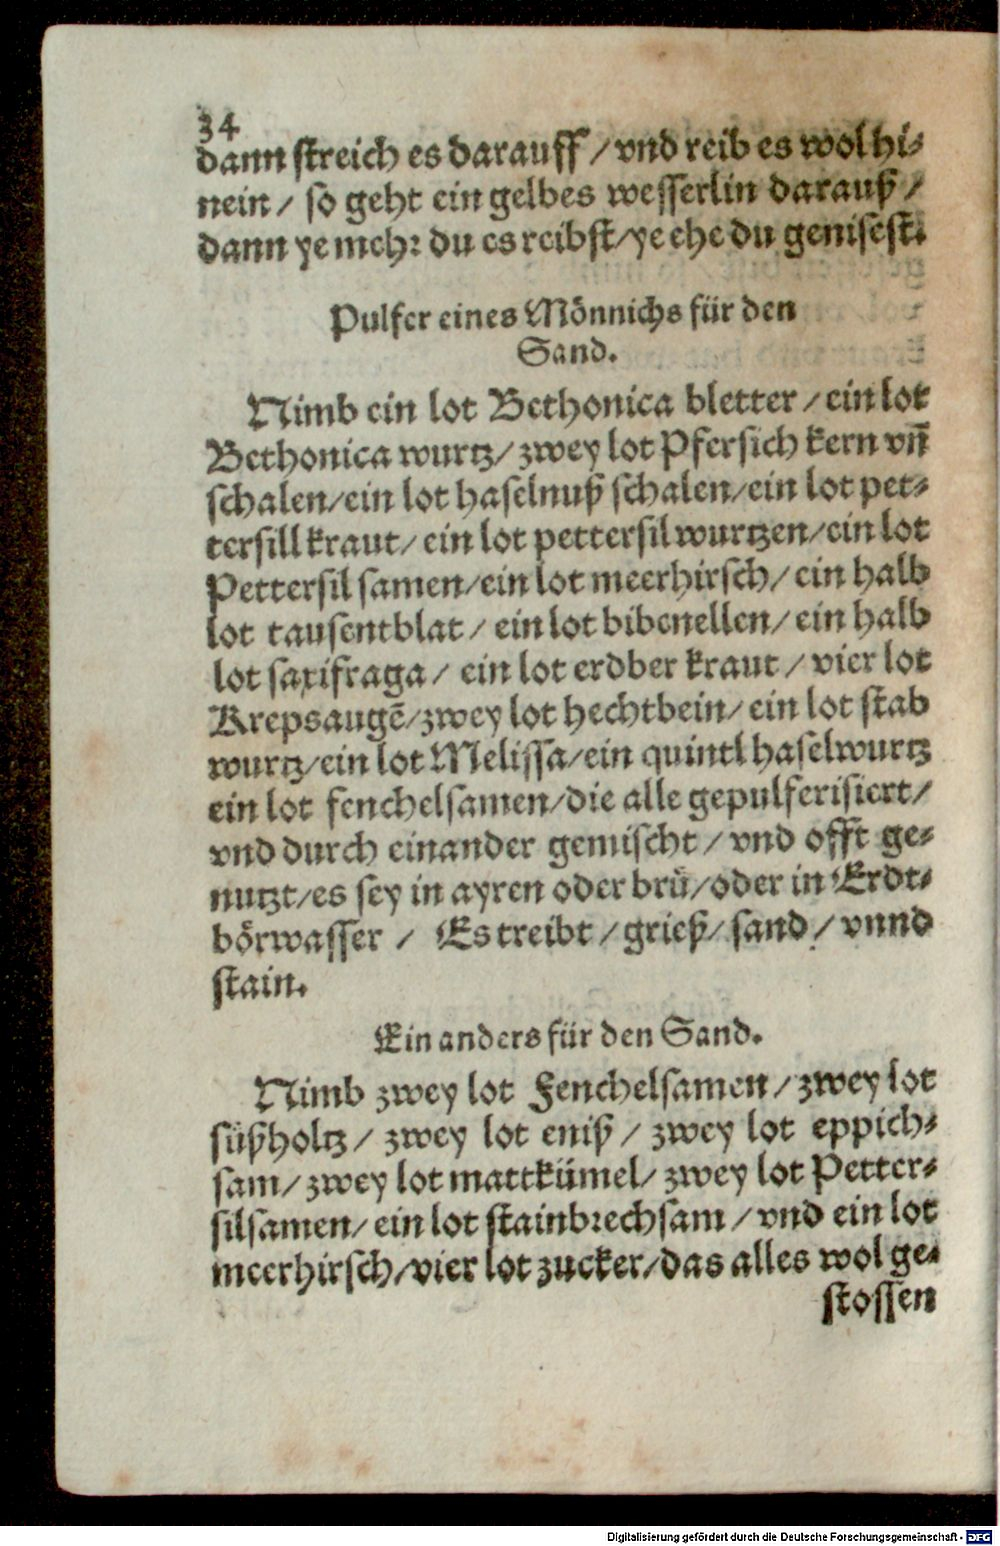 34
dann streich es darauff / vnd reib es wol hi⸗
nein / so geht ein gelbes wesserlin darauß /
dann ye mehr du es reibst / ye ehe du genisest.
Pulfer eines Mönnichs für den
Sand.
Nimb ein lot Bethonica bletter / ein lot
Bethonica wurtz / zwey lot Pfersich kern vñ
schalen / ein lot haselnuß schalen / ein lot pet⸗
tersill kraut / ein lot pettersil wurtzen / ein lot
Pettersil samen / ein lot meerhirsch / ein halb
lot tausentblat / ein lot bibenellen / ein halb
lot saxifraga / ein lot erdber kraut / vier lot
Krepsaugẽ / zwey lot hechtbein / ein lot stab
wurtz / ein lot Melissa / ein quintl haselwurtz
ein lot fenchelsamen / die alle gepulferisiert /
vnd durch einander gemischt / vnd offt ge⸗
nutzt / es sey in ayren oder brü / oder in Erdt⸗
börwasser / Es treibt / grieß / sand / vnnd
stain.
Ein anders für den Sand.
Nimb zwey lot Fenchelsamen / zwey lot
süßholtz / zwey lot eniß / zwey lot eppich⸗
sam / zwey lot mattkümel / zwey lot Petter⸗
silsamen / ein lot stainbrechsam / vnd ein lot
meerhirsch / vier lot zucker / das alles wol ge⸗
stossen
Digitalisierung gefördert durch die Deutsche Forschungsgemeinschaft - DFG